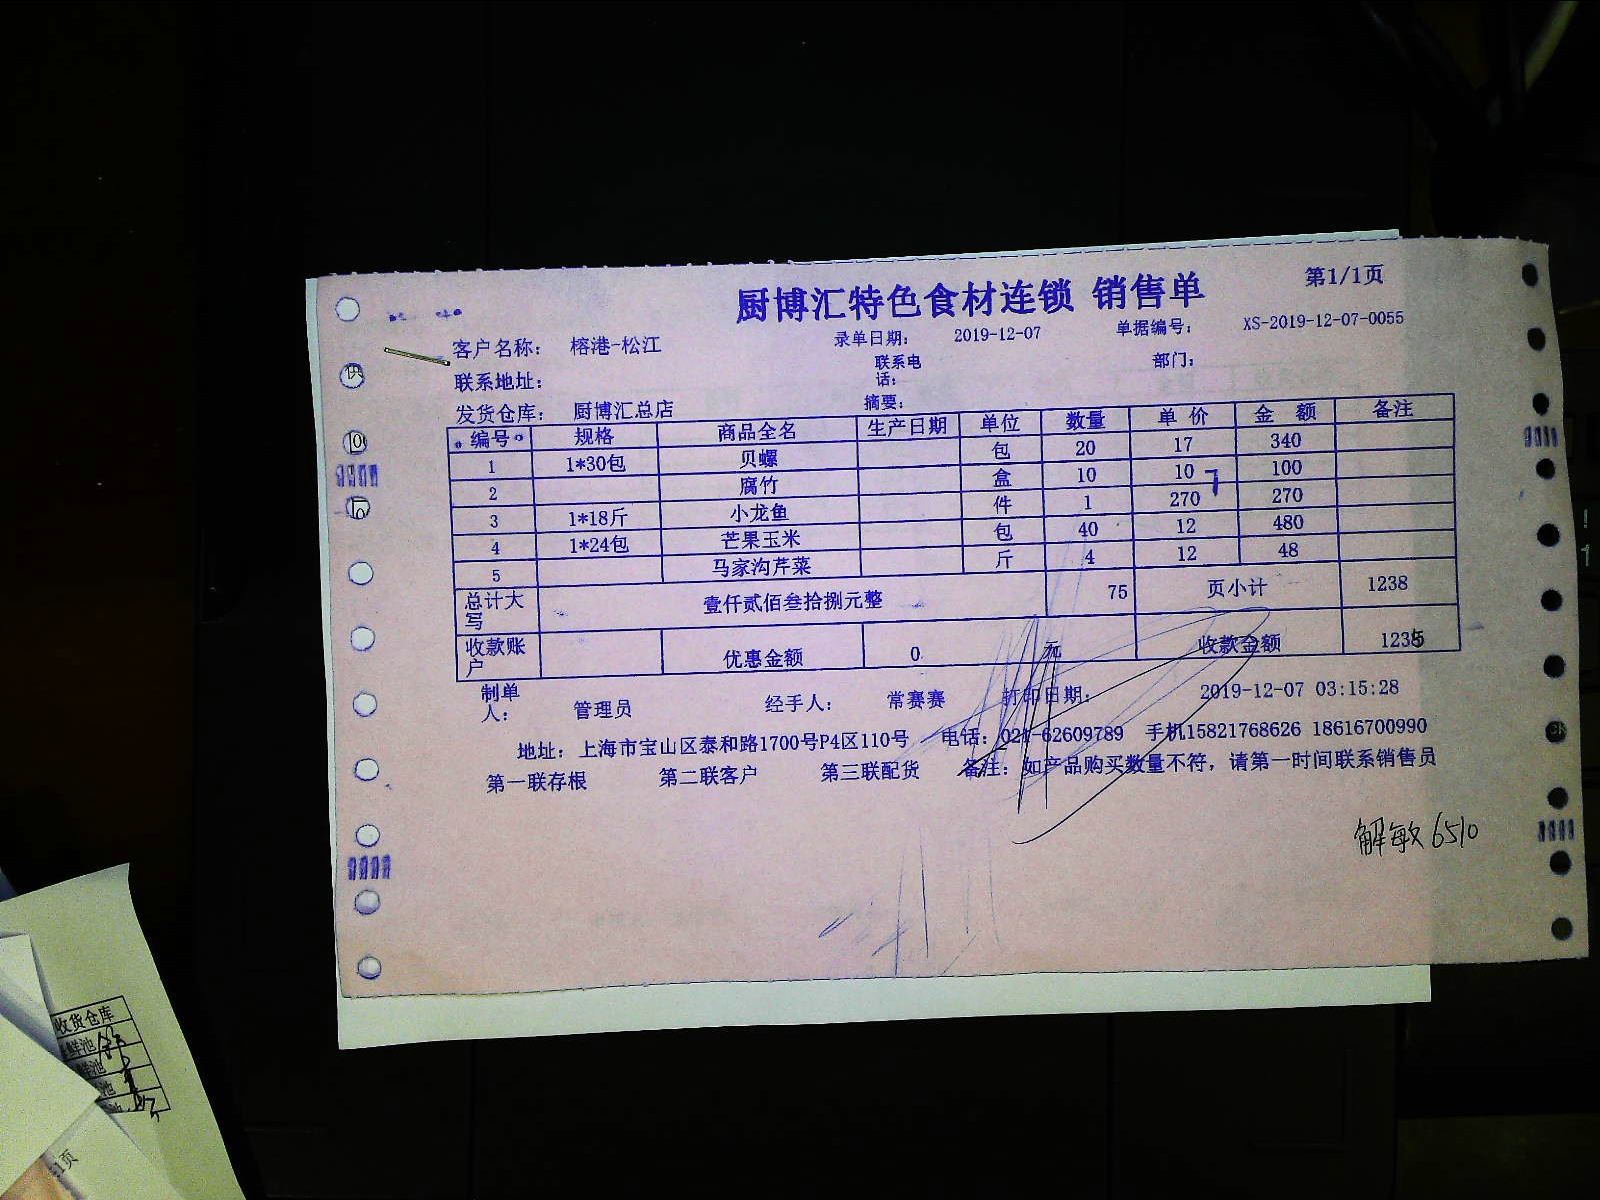 厨博汇特色食材连锁 销售单 第1/1页
客户名称： 榕港-松江 录单日期： 2019-12-07 单据编号： XS-2019-12-07-0055
联系地址： 联系电话： 部门：
发货仓库： 厨博汇总店 摘要：
编号 规格 商品全名 生产日期 单位 数量 单 价 金 额 备注
1 1*30包 贝螺 包 20 17 340
2 腐竹 盒 10 10 7 100
3 1*18斤 小龙鱼 件 1 270 270
4 1*24包 芒果玉米 包 40 12 480
5 马家沟芹菜 斤 4 12 48
总计大写 壹仟贰佰叁拾捌元整 75 页小计 1238
收款账户 优惠金额 0 元 收款金额 1235
制单人： 管理员 经手人： 常赛赛 打印日期： 2019-12-07 03:15:28
地址：上海市宝山区泰和路1700号P4区110号 电话：021-62609789 手机15821768626 18616700990
第一联存根 第二联客户 第三联配货 备注：如产品购买数量不符，请第一时间联系销售员
解敏 6510
收货仓库
鲜池
鲜池
池
1页